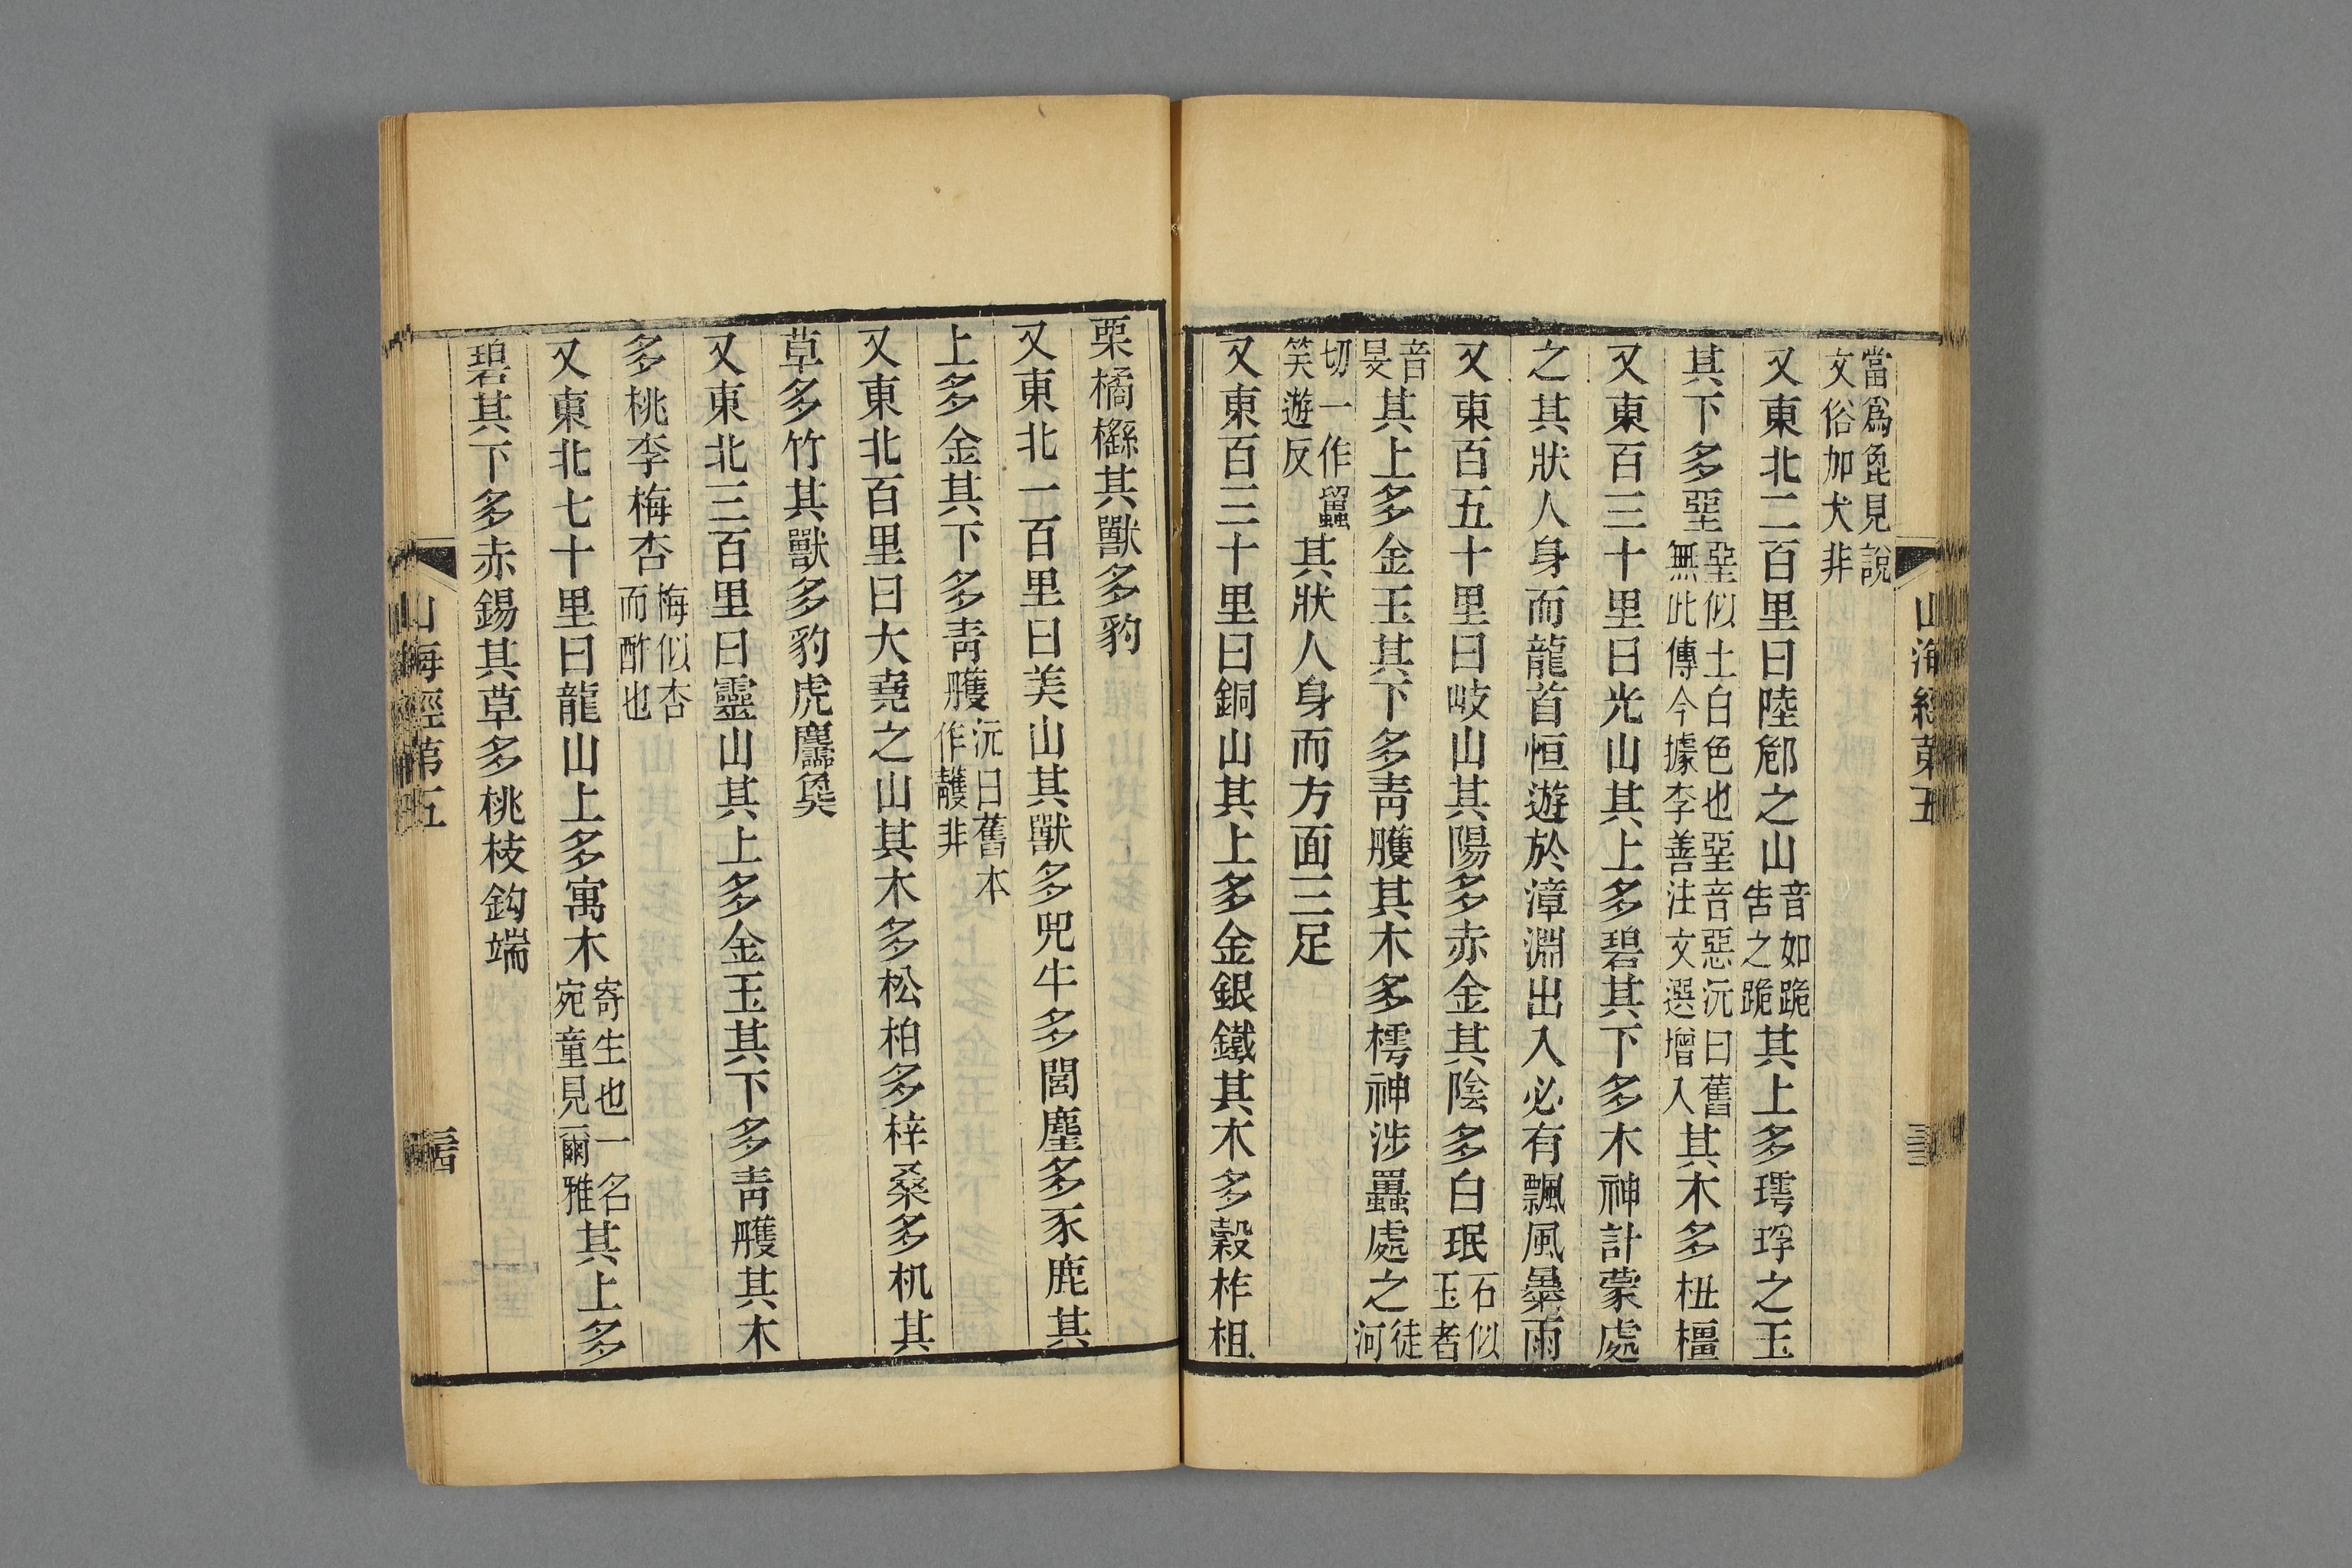 山海經第五
當爲㲋見說
文俗加犬非
又東北二百里曰陸䣀之山音如跪告之跪其上多㻬琈之玉
其下多堊堊似土白色也堊音惡沅曰舊無此傳今據李善注文選增入其木多杻橿
又東百三十里曰光山其上多碧其下多木神計蒙處
之其狀人身而龍首恒遊於漳淵出入必有飄風暴雨
又東百五十里曰岐山其陽多赤金其陰多白珉石似玉者
音旻其上多金玉其下多青雘其木多樗神涉䰠處之徒河
切一作䰠笑遊反其狀人身而方面三足
又東百三十里曰銅山其上多金銀鐵其木多穀柞柤
栗橘櫾其獸多犳
又東北一百里曰美山其獸多兕牛多閭麈多豕鹿其
上多金其下多青雘沅曰舊本作䨼非
又東北百里曰大堯之山其木多松柏多梓桑多机其
草多竹其獸多豹虎麢㚟
又東北三百里曰靈山其上多金玉其下多青雘其木
多桃李梅杏梅似杏而酢也
又東北七十里曰龍山上多寓木寄生也一名宛童見爾雅其上多
碧其下多赤錫其草多桃枝鈎端
山海經第五